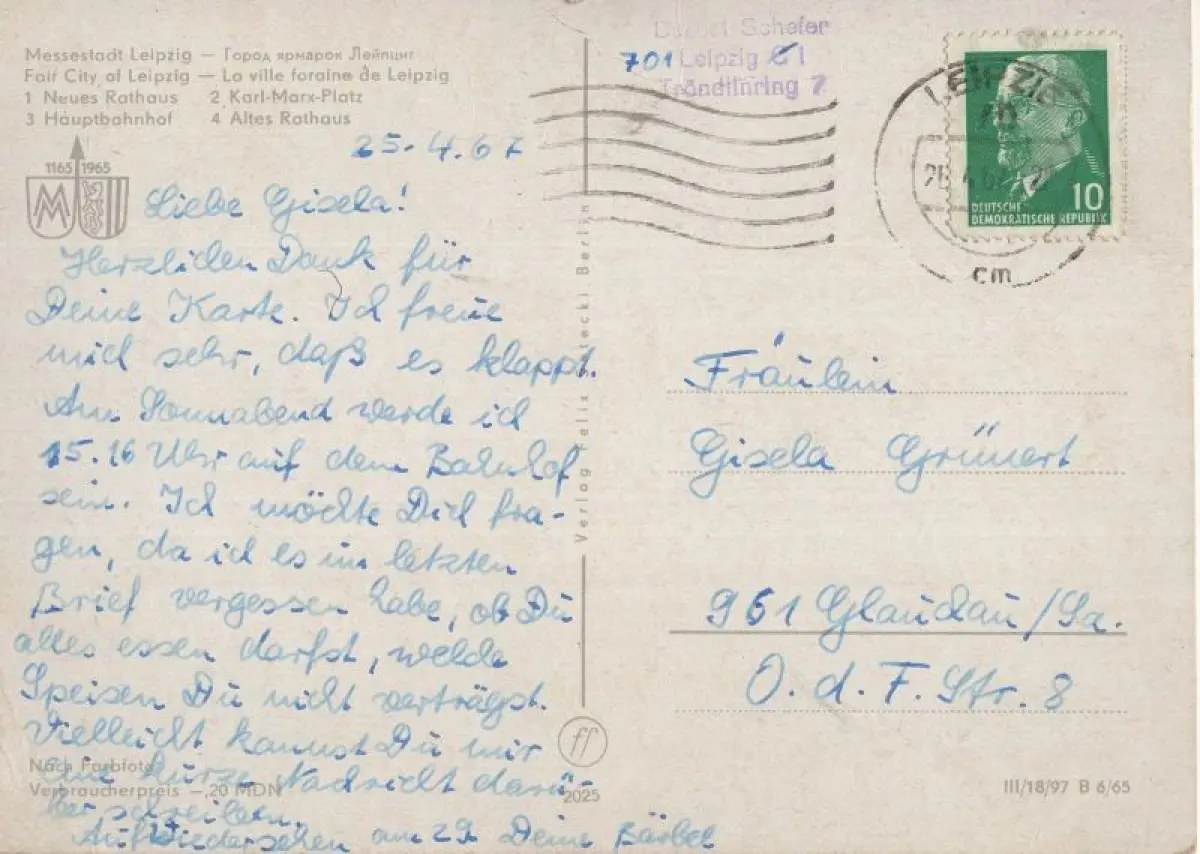 Messestadt Leipzig — Город ярмарок Лейпциг
Fair City of Leipzig — La ville foraine de Leipzig
1 Neues Rathaus 2 Karl-Marx-Platz
3 Hauptbahnhof 4 Altes Rathaus
1165 1965
M
25.4.67
Liebe Gisela!
Herzlichen Dank für
Deine Karte. Ich freue
mich sehr, daß es klappt.
Am Sonnabend werde ich
15.16 Uhr auf dem Bahnhof
sein. Ich möchte Dich fra-
gen, da ich es im letzten
Brief vergessen habe, ob Du
alles essen darfst, welche
Speisen Du nicht verträgst.
Vielleicht kannst Du mir
eine kurze Nachricht darü-
ber schreiben.
Auf Wiedersehen am 29. Deine Bärbel
Nach Farbfotos
Verbraucherpreis —,20 MDN
Verlag Felix Setecki Berlin
ff
2025
Schefer
701 Leipzig C 1
Tröndlinring 7
LEIPZIG
cm
10
DEUTSCHE
DEMOKRATISCHE REPUBLIK
Fräulein
Gisela Grünert
961 Glauchau/Sa.
O.d.F. Str. 8
III/18/97 B 6/65